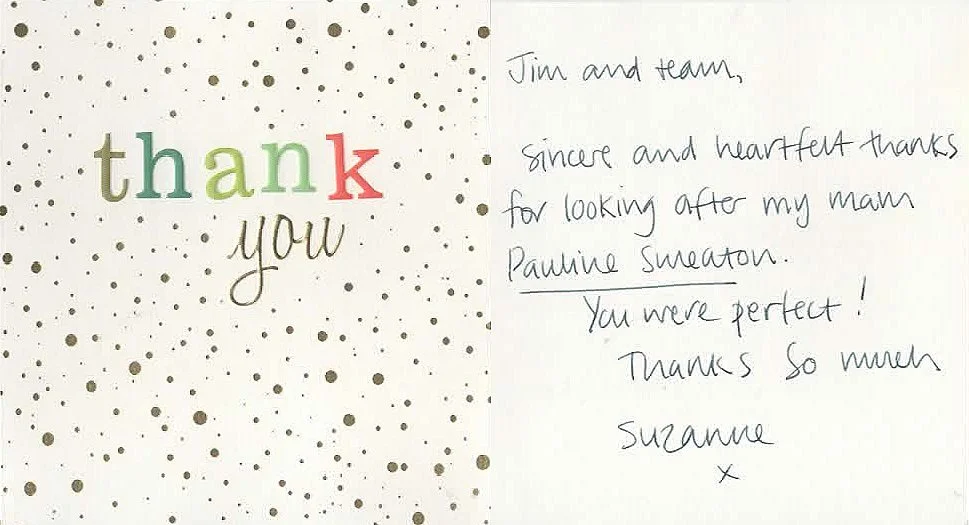 thank
you
Jim and team,
sincere and heartfelt thanks
for looking after my mam
Pauline Smeaton.
You were perfect!
Thanks so much
Suzanne
x